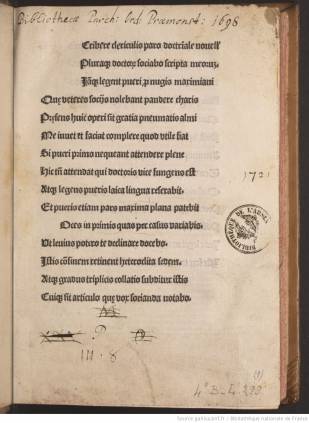 Bibliothecæ Parch: Ord: Præmonst: 1698
Scribere clericulis paro doctrinale novellis
Pluraque doctorum sociabo scripta meorum
Jamque legent pueri pro nugis maximiani
Que veteres sociis nolebant pandere charis
Presens huic operi sit gratia pneumatis almi
Me iuvet et faciat complere quod utile fiat
Si pueri primo nequeant attendere plene
Hic tamen attendat qui doctoris vice fungens est
Atque legens pueris laica lingua reserabit
Et pueris etiam pars maxima plana patebit
Voces in primis quas per casus variabis
Ut levius potero te declinare docebo
Istis confinem retinent heteroclita sedem
Atque gradus triplicis collatio subditur istis
Cuique sit articulo que vox socianda notabo
172
BIBLIOTHEQUE DE L'ARSENAL
P
III. 8
(1)
4° B. L. 299
Source gallica.bnf.fr / Bibliothèque nationale de France